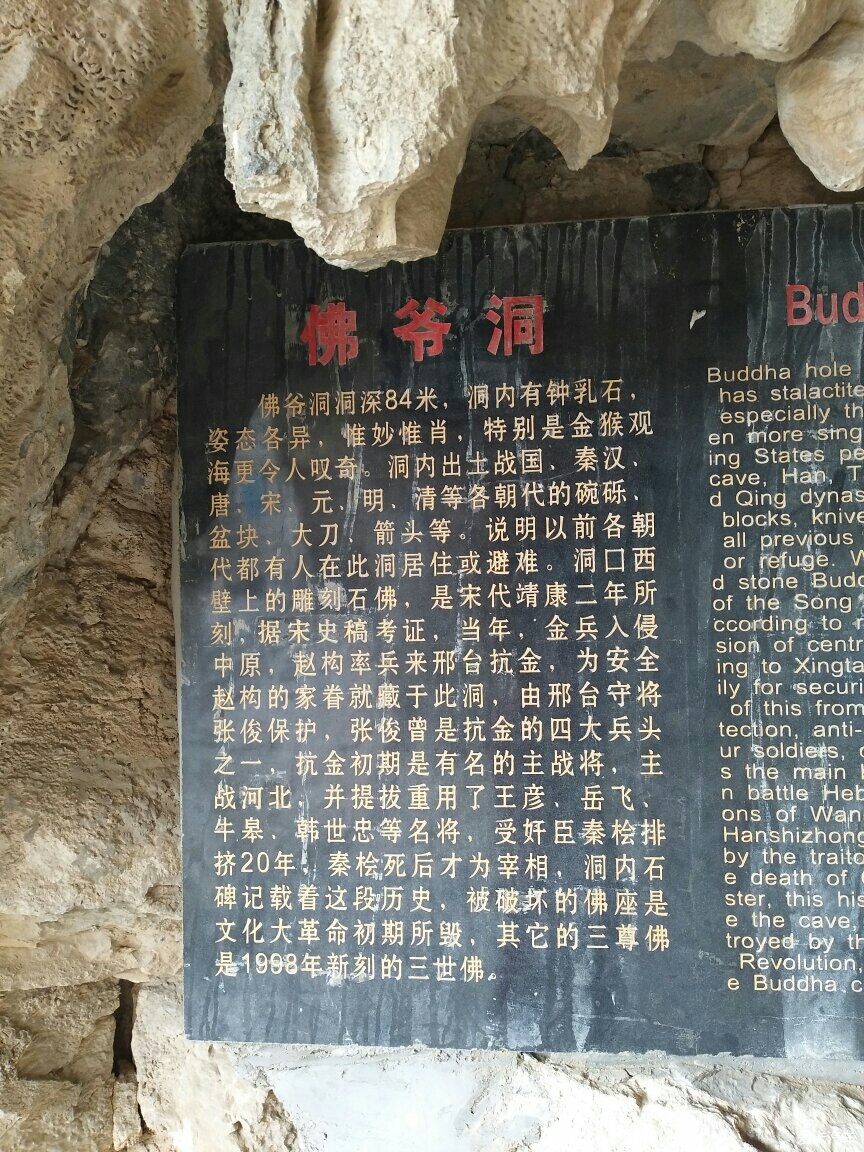 佛爷洞
佛爷洞洞深84米，洞内有钟乳石，
姿态各异，惟妙惟肖，特别是金猴观
海更令人叹奇。洞内出土战国、秦汉、
唐、宋、元、明、清等各朝代的碗砾、
盆块、大刀、箭头等。说明以前各朝
代都有人在此洞居住或避难。洞口西
壁上的雕刻石佛，是宋代靖康二年所
刻，据宋史稿考证，当年，金兵入侵
中原，赵构率兵来邢台抗金，为安全
赵构的家眷就藏于此洞，由邢台守将
张俊保护，张俊曾是抗金的四大兵头
之一，抗金初期是有名的主战将，主
战河北，并提拔重用了王彦、岳飞、
牛皋、韩世忠等名将，受奸臣秦桧排
挤20年，秦桧死后才为宰相，洞内石
碑记载着这段历史，被破坏的佛座是
文化大革命初期所毁，其它的三尊佛
是1998年新刻的三世佛。
Bud
Buddha hole
has stalactite
especially th
en more sing
ing States pe
cave, Han, T
d Qing dynas
blocks, knive
all previous
or refuge. W
d stone Budd
of the Song
ccording to r
sion of centr
ing to Xingta
ily for securi
of this from
tection, anti-
ur soldiers,
s the main
n battle Heb
ons of Wan
Hanshizhong
by the traito
e death of
ster, this his
e the cave,
troyed by th
Revolution,
e Buddha c